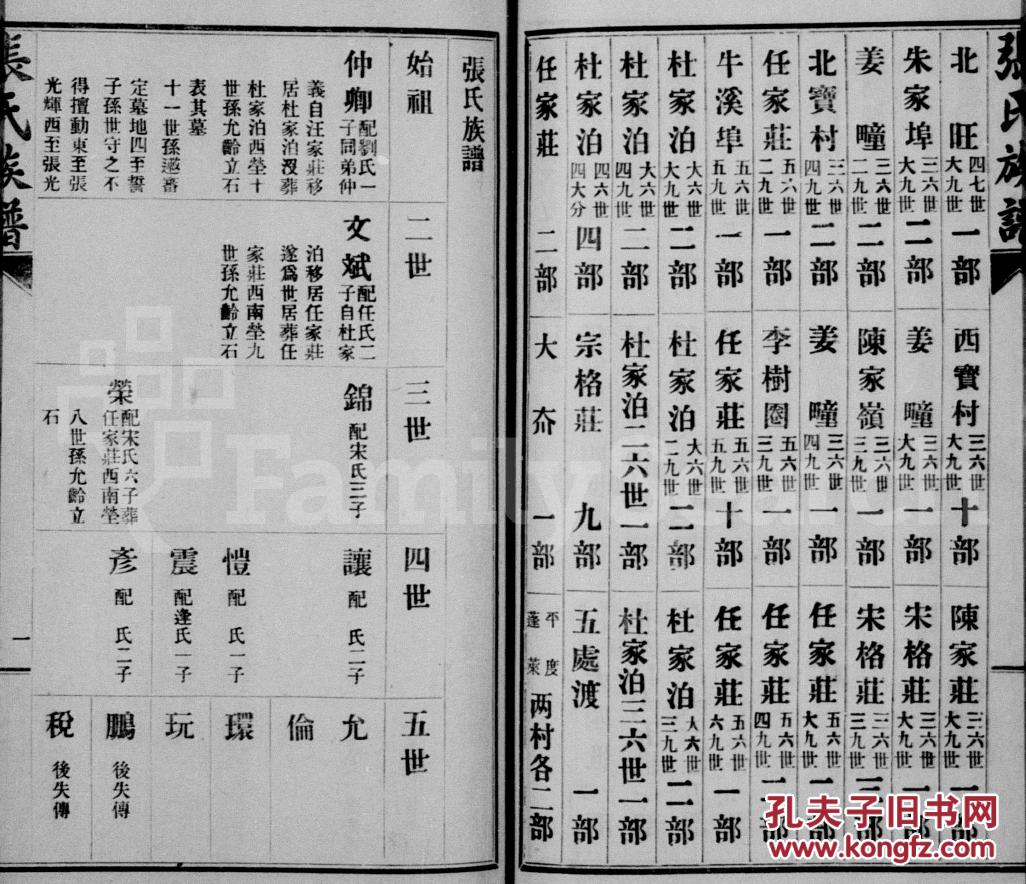 張氏族譜
北旺 四七世 大九世 一部
朱家埠 三六世 大九世 二部
姜疃 三六世 二九世 二部
北寶村 三六世 四九世 二部
任家莊 五六世 二九世 一部
牛溪埠 五六世 五九世 一部
杜家泊 大六世 大九世 二部
杜家泊 六世 四九世 二部
杜家泊 四六世 四大分 四部
任家莊 二部
西寶村 三六世 大九世 十部
姜疃 三六世 大九世 一部
陳家嶺 三六世 三九世 一部
姜疃 三六世 四九世 一部
李樹圈 五六世 三九世 一部
任家莊 五六世 五九世 十部
杜家泊 大六世 二九世 二部
杜家泊二六世一部
宗格莊 九部
大夼 一部
陳家莊 三六世 大九世 一部
宋格莊 三六世 大九世 一部
宋格莊 三六世 三九世 三部
任家莊 五六世 大九世 一部
任家莊 五六世 四九世 二部
任家莊 五六世 六九世 一部
杜家泊 大六世 三九世 二部
杜家泊三六世一部
五處渡 一部
平度 蓬萊 两村各二部
張氏族譜
始祖
仲卿 配劉氏一子同弟仲
義自汪家莊移
居杜家泊沒葬
杜家泊西塋十
世孫允齡立石
表其墓
十一世孫邀審
定墓地四至誓
子孫世守之不
得擅動東至張
光輝西至張光
二世
文斌 配任氏二子自杜家
泊移居任家莊
遂爲世居葬任
家莊西南塋九
世孫允齡立石
三世
錦 配宋氏三子
榮 配宋氏六子葬任家莊西南塋
八世孫允齡立
石
四世
讓 配 氏二子
愷 配 氏一子
震 配逄氏一子
彥 配 氏二子
五世
允
倫
環
玩
鵬 後失傳
稅 後失傳
張氏族譜
一
FamilySearch
孔夫子旧书网
www.kongfz.com